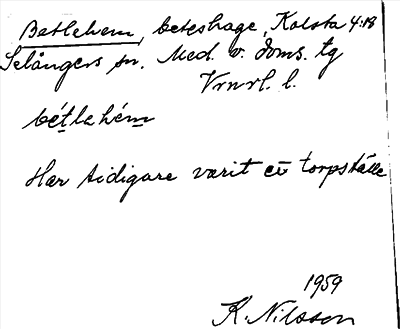 Betlehem, beteshage, Kolsta 4:18
Selångers sn. Med. v. doms. tg
Vrnrl. l.
bétlehém
Har tidigare varit ett torpställe
1959
K. Nilsson